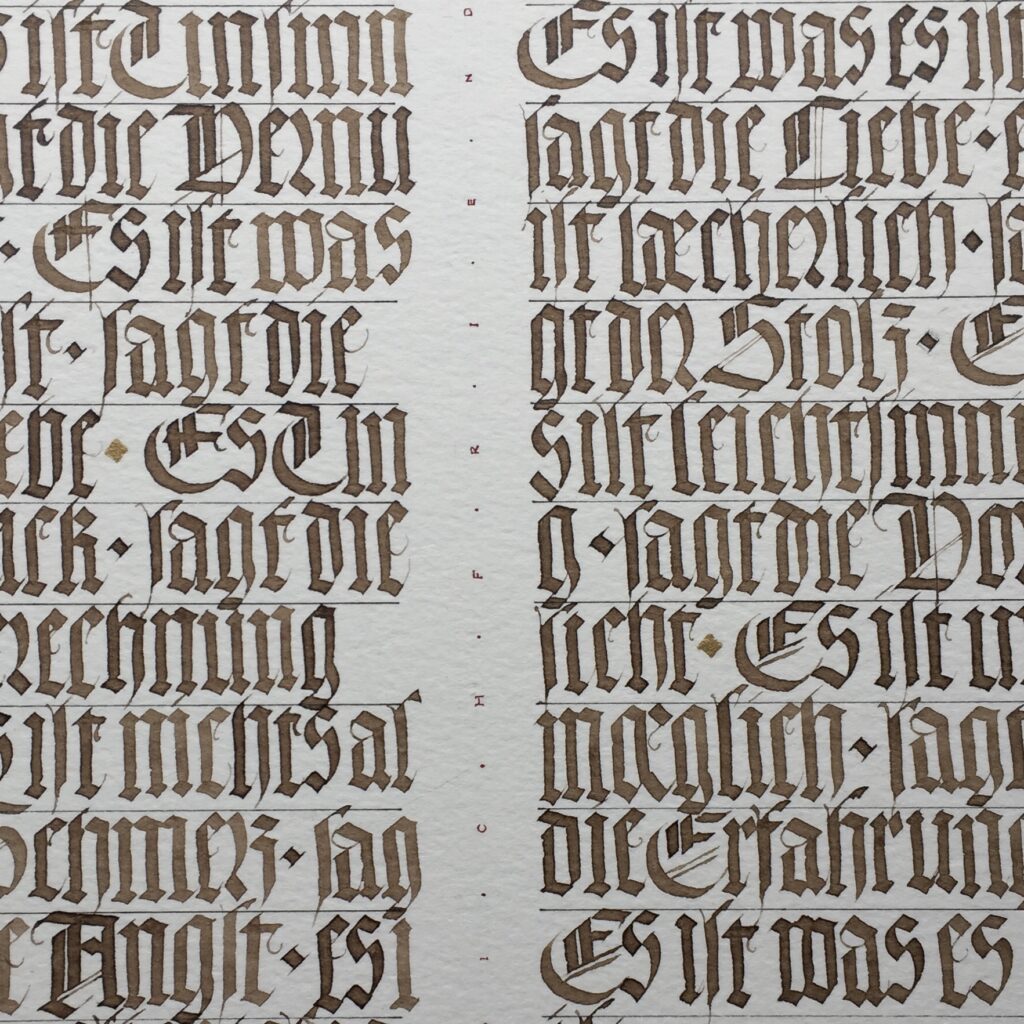 s ist Unsinn
gt die Vernu
· Es ist was
st · sagt die
ebe · Es Un
ück · sagt die
rechnung
s ist nichts al
chmerz · sag
e Angst · es i
· I · C · H · F · R · I · E · N D
Es ist was es ist
sagt die Liebe · e
ist læcherlich · sa
gt der Stolz · E
s ist leichtsinni
g · sagt die Vor
sicht · Es ist un
mœglich · sagt
die Erfahrung
Es ist was es